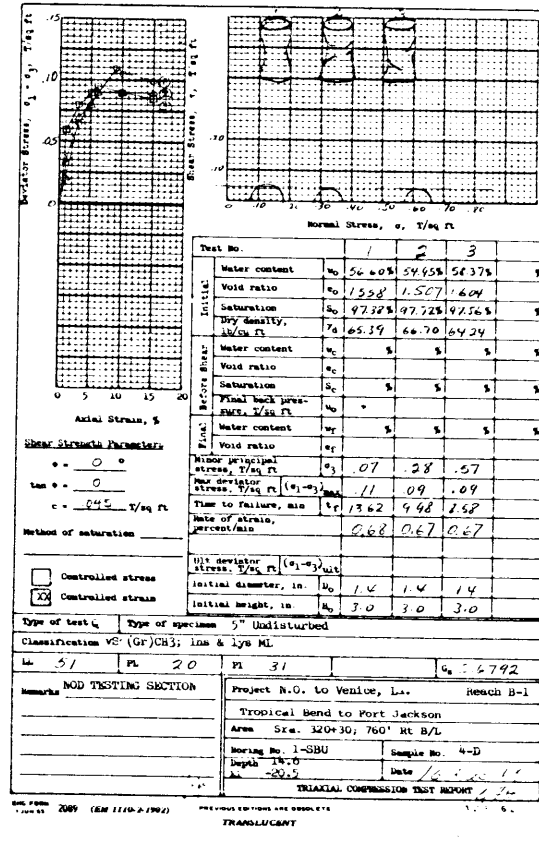 Deviator Stress, σ1 - σ3, T/sq ft
.15
.10
.05
0
0 5 10 15 20
Axial Strain, %
Shear Stress, τ, T/sq ft
.20
.10
0 .10 .20 .30 .40 .50 .60 .70 .80
Normal Stress, σ, T/sq ft
Shear Strength Parameters
φ = 0 °
tan φ = 0
c = .045 T/sq ft
Method of saturation
Controlled stress
XX Controlled strain
Test No. 1 2 3
Initial
Water content w0 56.60% 54.45% 58.37% %
Void ratio e0 1.558 1.507 1.604
Saturation S0 97.38% 97.72% 97.56% %
Dry density, lb/cu ft γd 65.39 66.70 64.24
Before Shear
Water content wc % % % %
Void ratio ec
Saturation Sc % % % %
Final back pressure, T/sq ft u0
Final
Water content wf % % % %
Void ratio ef
Minor principal stress, T/sq ft σ3 .07 .28 .57
Max deviator stress, T/sq ft (σ1-σ3)max .11 .09 .09
Time to failure, min tf 13.62 9.48 8.58
Rate of strain, percent/min 0.68 0.67 0.67
Ult deviator stress, T/sq ft (σ1-σ3)ult
Initial diameter, in. D0 1.4 1.4 1.4
Initial height, in. H0 3.0 3.0 3.0
Type of test Q Type of specimen 5" Undisturbed
Classification VS (Gr)CH3; lns & lys ML
LL 51 PL 20 PI 31 Gs 2.6792
Remarks NOD TESTING SECTION
Project N.O. to Venice, La. Reach B-1
Tropical Bend to Fort Jackson
Area Sta. 320+30; 760' Rt B/L
Boring No. 1-SBU Sample No. 4-D
Depth 14.0
El -20.5 Date
TRIAXIAL COMPRESSION TEST REPORT
ENG FORM 2089 (EM 1110-2-1902) PREVIOUS EDITIONS ARE OBSOLETE
TRANSLUCENT